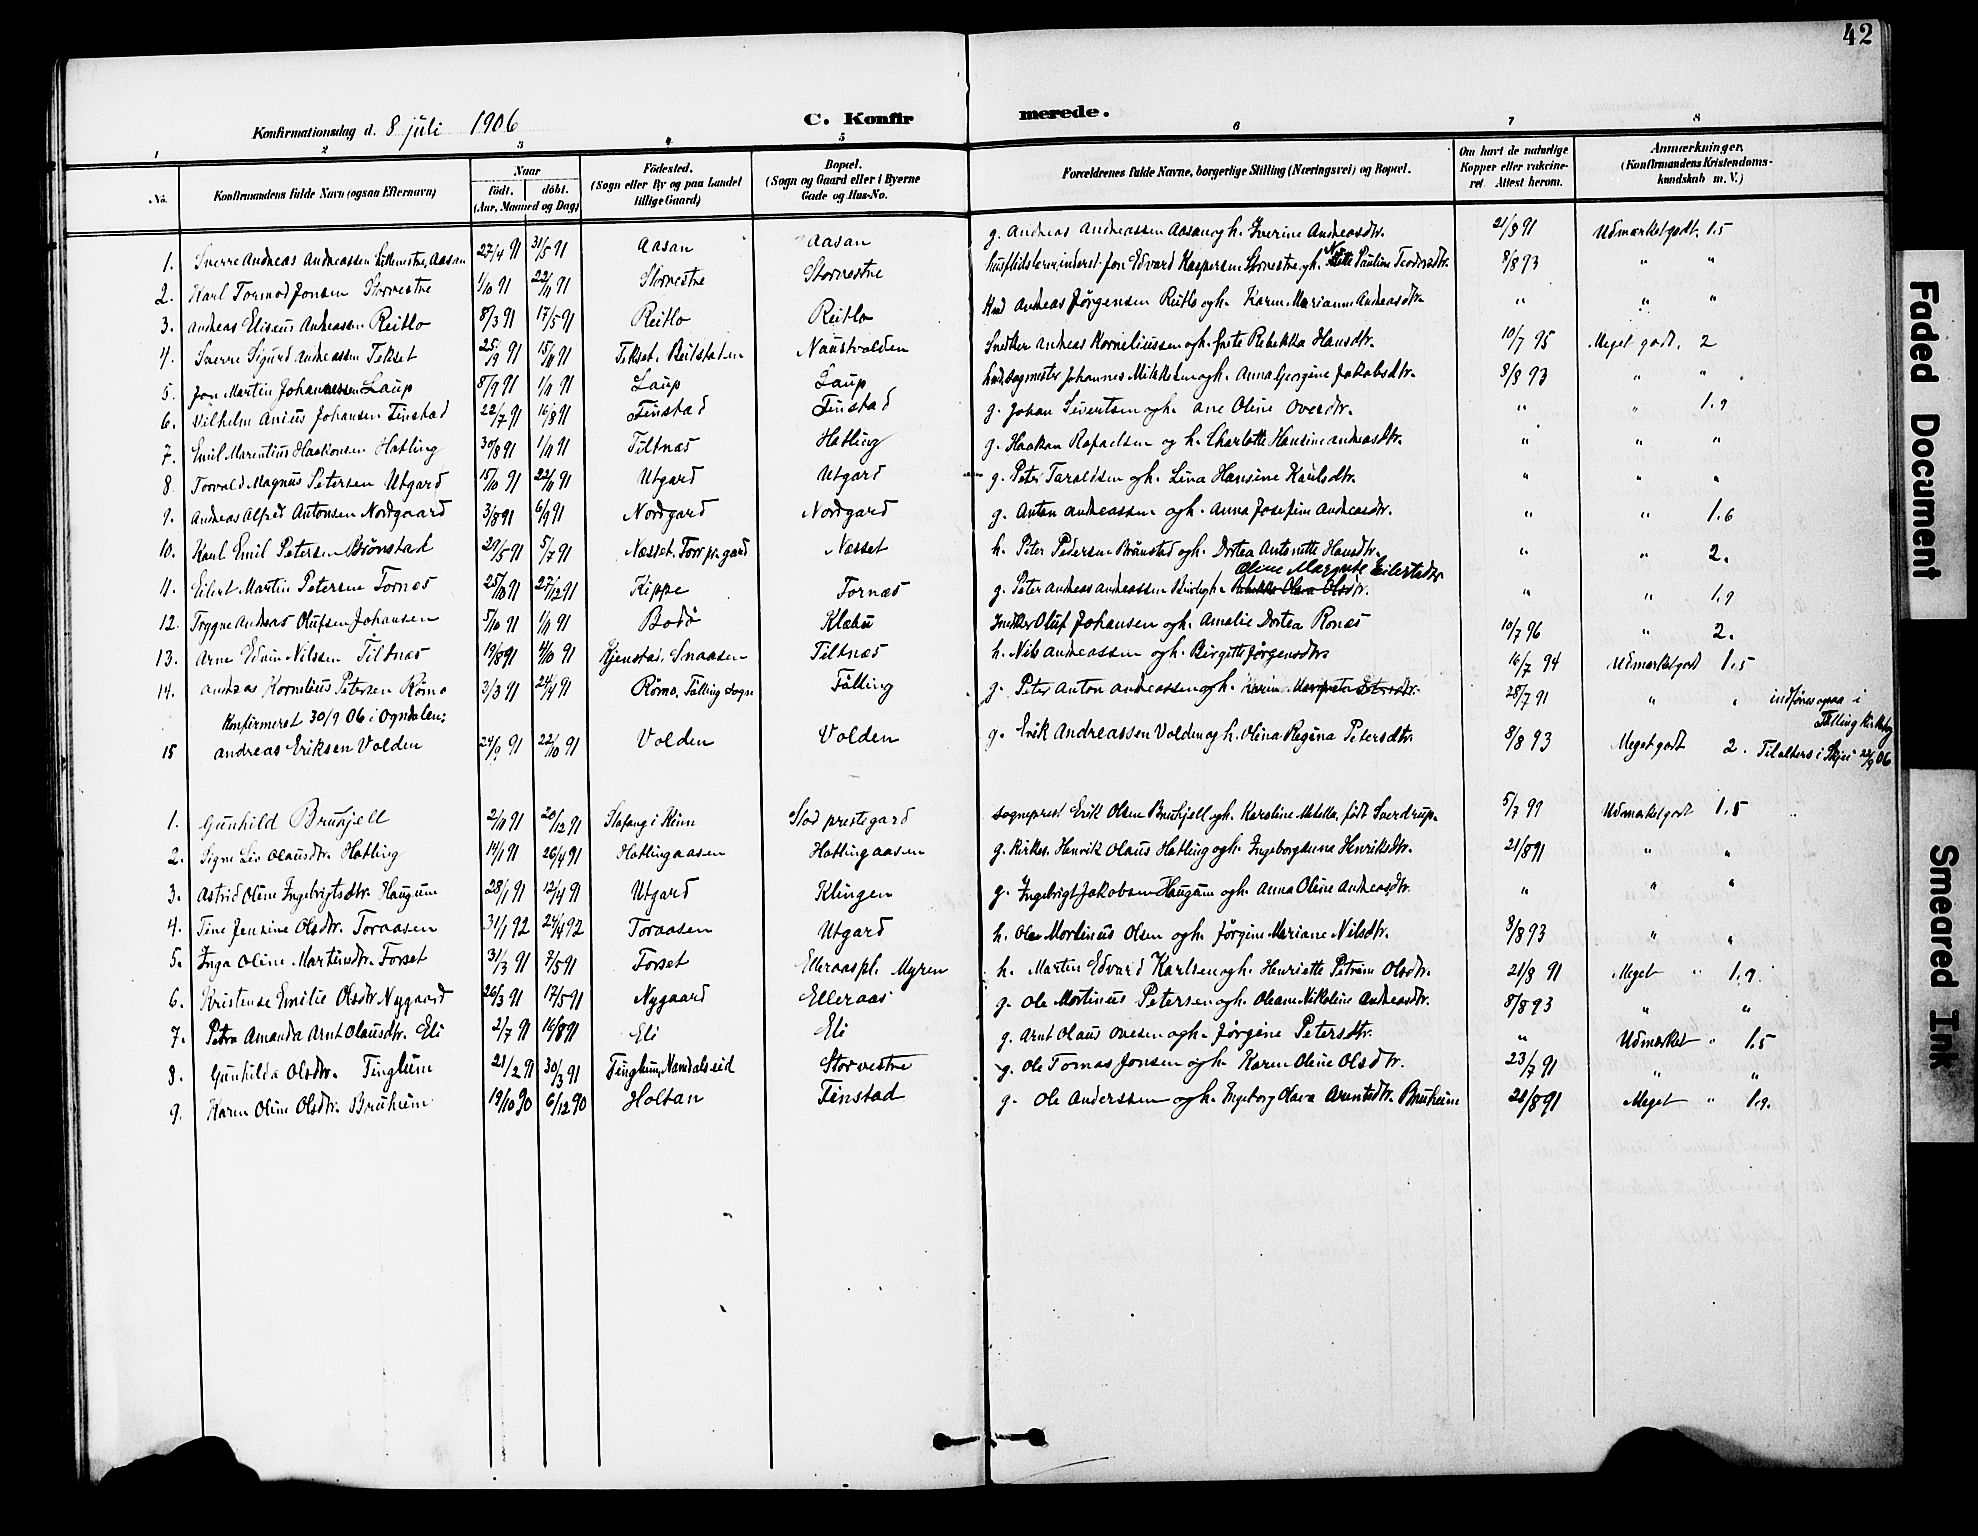 42
Konfirmationsdag d. 8 juli 1906 C. Konfirmerede.
1 2 3 4 5 6 7 8
No. Konfirmandens fulde Navn (ogsaa Efternavn) Naar födt. döbt. (Aar, Maaned og Dag) Födested. (Sogn eller By og paa Landet tillige Gaard) Bopæl. (Sogn og Gaard eller i Byerne Gade og Hus-No. Forældrenes fulde Navne, borgerlige Stilling (Næringsvei) og Bopæl. Om havt de naturlige Kopper eller vakcineret. Attest herom. Anmærkninger, (Konfirmandens Kristendomskundskab m. V.)
1. Sverre Andreas Andreassen Lillevestre, Aasan 27/4 91 31/5 91 Aasan Aasan g. Andreas Andreassen Aasan og h. Iverine Andreasdtr. 21/8 91 Udmærket godt. 1.5
2. Karl Tormod Jonsen Storvestre 1/10 91 22/11 91 Storvestre Storvestre Jon Edvard Kaspersen Storvestre og h. Pauline Teodorsdtr. 8/8 93 " "
3. Andreas Eliseus Andreassen Reitlo 8/3 91 17/5 91 Reitlo Reitlo Hmd Andreas Jørgensen Reitlo og h. Karen Marianne Andreasdtr. " " "
4. Sverre Sigurd Andreassen Tekset 25/9 91 15/11 91 Tekset, Beitstaden Naustvolden Snedker Andreas Korneliussen og h. Grete Rebekka Hansdtr. 10/7 95 Meget godt. 2
5. Jon Martin Johannessen Laup 8/9 91 1/11 91 Laup Laup Johannes Mikkelsen og h. Anna Georgine Jakobsdtr. 8/8 93 " "
6. Vilhelm Anius Johansen Finstad 22/7 91 16/8 91 Finstad Finstad g. Johan Sivertsen og h. Ane Oline Ovesdtr. " " 1.9
7. Emil Marentius Haakonsen Hatling 30/8 91 1/11 91 Tiltnæs Hatling g. Haakan Rafaelsen og h. Charlotte Hansine Andreasdtr. " " "
8 Torvald Magnus Petersen Utgard 15/10 91 22/11 91 Utgard Utgard g. Peter Taraldsen og h. Lina Hansine Karlsdtr. " " "
9. Andreas Alfred Antonsen Nordgaard 3/8 91 6/9 91 Nordgard Nordgard g. Anton Andreassen og h. Anna Josefine Andreasdtr. " " 1.6
10. Karl Emil Petersen Brønstad 29/5 91 5/7 91 Næsset. Forr pr.gard Næsset h. Peter Pedersen Brønstad og h. Dortea Antonette Hansdtr. " " 2.
Oline Margrete Eilertsdtr
11. Eilert Martin Petersen Fornæs 25/10 91 27/12 91 Kippe Fornæs g. Peter Andreas Andreassen og h. Rebekka Olava Olsdtr. " " 1.9
12. Trygve Andreas Olufsen Johansen 5/10 91 1/11 91 Bodø Klæbu Snedker Oluf Johansen og h. Amalie Dortea Rones 10/7 96 " 2.
13. Arne Edvin Nilssen Tiltnæs 19/8 91 4/10 91 Kjenstad, Snaasen Tiltnæs h. Nils Andreassen og h. Birgitte Jørgensdtr. 16/7 94 Udmærket godt 1.5
14. Andreas Kornelius Petersen Rømo 3/3 91 24/4 91 Rømo, Følling Sogn Følling g. Peter Anton Andreassen og h. 28/7 91 " " indføres ogsaa i
Konfirmeret 30/9 06 i Ogndalen: Følling Kirkebog
15 Andreas Eriksen Volden 24/9 91 22/10 91 Volden Volden g. Erik Andreassen Volden og h. Olina Regina Petersdtr. 8/8 93 Meget godt 2. Til alters i Skjei 22/9 06
1. Gunhild Brukjell 2/11 91 20/12 91 Stafang i Kinn Stod prestegard Sogneprest Erik Olsen Brukjell og h. Karoline Metella, født Sverdrup. 5/7 99 Udmærket godt 1.5
2. Signe Liv Olausdtr. Hatling 14/1 91 26/4 91 Hatlingaasen Hatlingaasen g. Kirkes. Henrik Olaus Hatling og h. Ingeborg Anna Henriksdtr. 21/8 91 " "
3. Astrid Oline Ingebrigtsdtr. Haugum 28/1 91 12/4 91 Utgard Klingen g. Ingebrigt Jakobsen Haugum og h. Anna Oline Andreasdtr. " " "
4. Tine Jensine Olsdtr. Toraasen 31/1 92 24/4 92 Toraasen Utgard h. Ole Mortinus Olsen og h. Jørgine Mariane Nilsdtr. 8/8 93 " "
5. Inga Oline Martinsdtr. Forset 31/3 91 7/5 91 Forset Elleraaspl. Myren h. Martin Edvard Karlsen og h. Henriette Petrine Olsdtr. 21/8 91 Meget " 1.9.
6. Kristense Emilie Olsdtr. Nygaard 26/3 91 17/5 91 Nygaard Elleraas g. Ole Mortinus Petersen og h. Oleane Nikoline Andreasdtr. 8/8 93 " "
7. Petra Amanda Arnt Olausdtr. Eli 2/7 91 16/8 91 Eli Eli g. Arnt Olaus Ovesen og h. Jørgine Petersdtr. " Udmærket " 1.5
8. Gunhilda Olsdtr. Finglum 21/2 91 30/3 91 Finglum, Namdalseid Storvestre g. Ole Tomas Jonsen og h. Karen Oline Olsdtr. 23/7 91 " "
9. Karen Oline Olsdtr. Bruheim 19/10 90 6/12 90 Holtan Finstad g. Ole Anderssen og h. Ingeborg Olava Arentsdtr. Bruheim 21/8 91 Meget " 1.9.
Faded Document
Smeared Ink